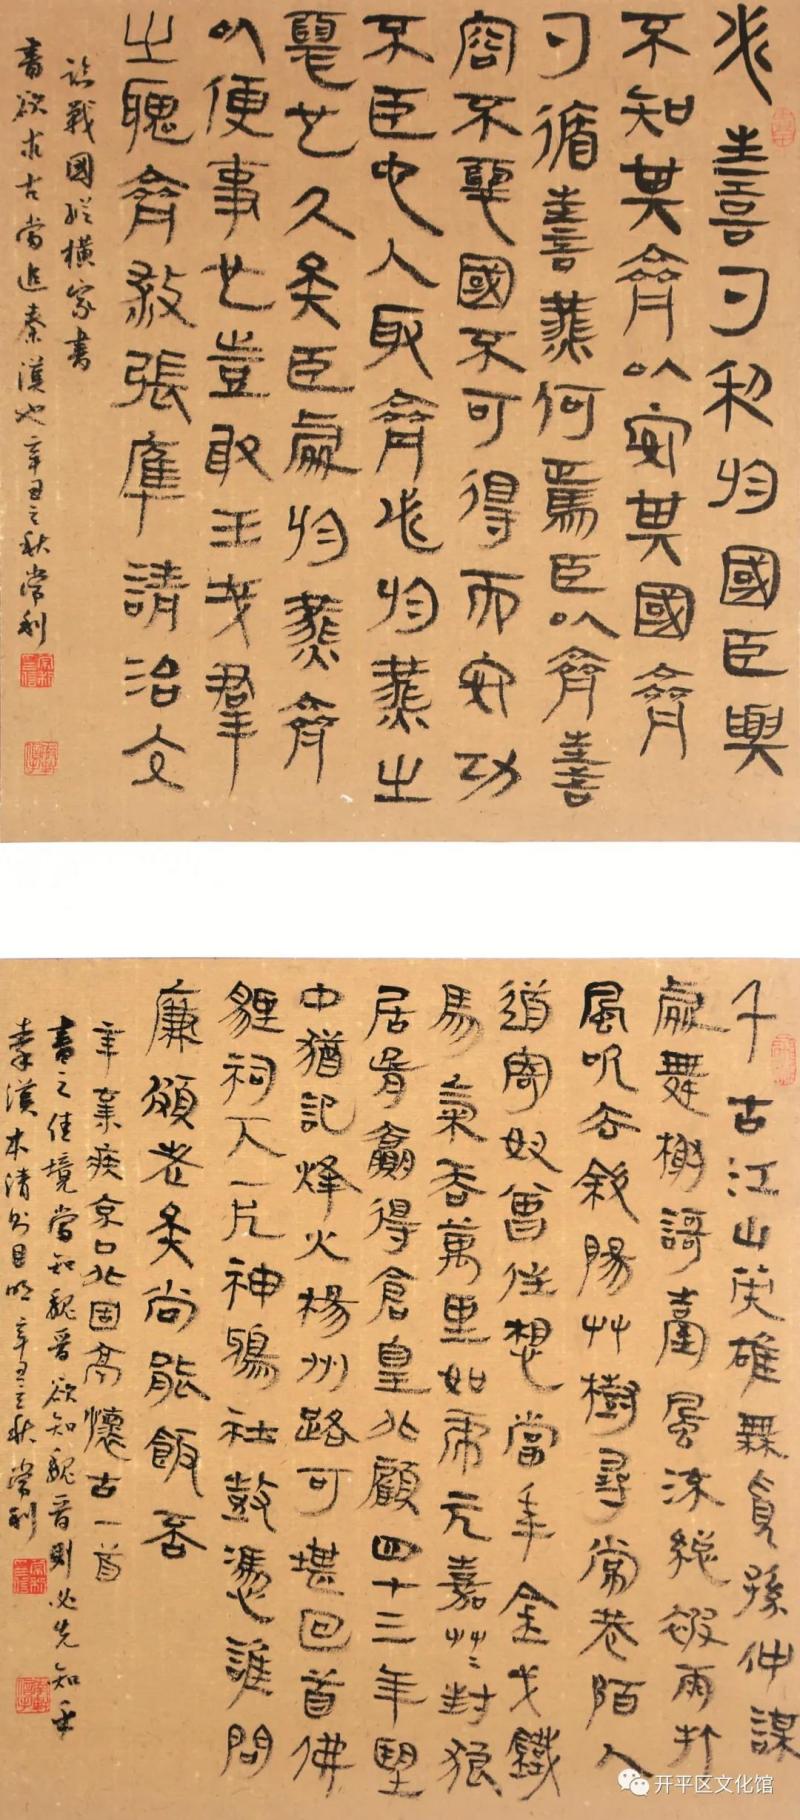 善勺於國臣與
不知其齊以安其國齊
勺循善燕何焉臣以齊善
容不國不可得而安功
不臣也人取齊必於燕之
也久矣臣處於燕齊
以便事也豈敢王群
之醜齊殺張庫請治文
臨戰國縱橫家書
書欲求古當追秦漢也辛丑之秋常利
千古江山英雄無覓孫仲謀
處舞榭謌臺風流總被雨打
風吹去斜陽艸樹尋常巷陌人
道寄奴曾住想當年金戈鐵
馬氣吞萬里如虎元嘉艸艸封狼
居胥贏得倉皇北顧四十三年望
中猶記烽火楊州路可堪回首佛
貍祠下一片神鴉社鼓憑誰問
廉頗老矣尚能飯否
辛棄疾京口北固亭懷古一首
書之佳境當知魏晉欲知魏晉則必先知乎
秦漢本清則目明辛丑之秋常利
开平区文化馆